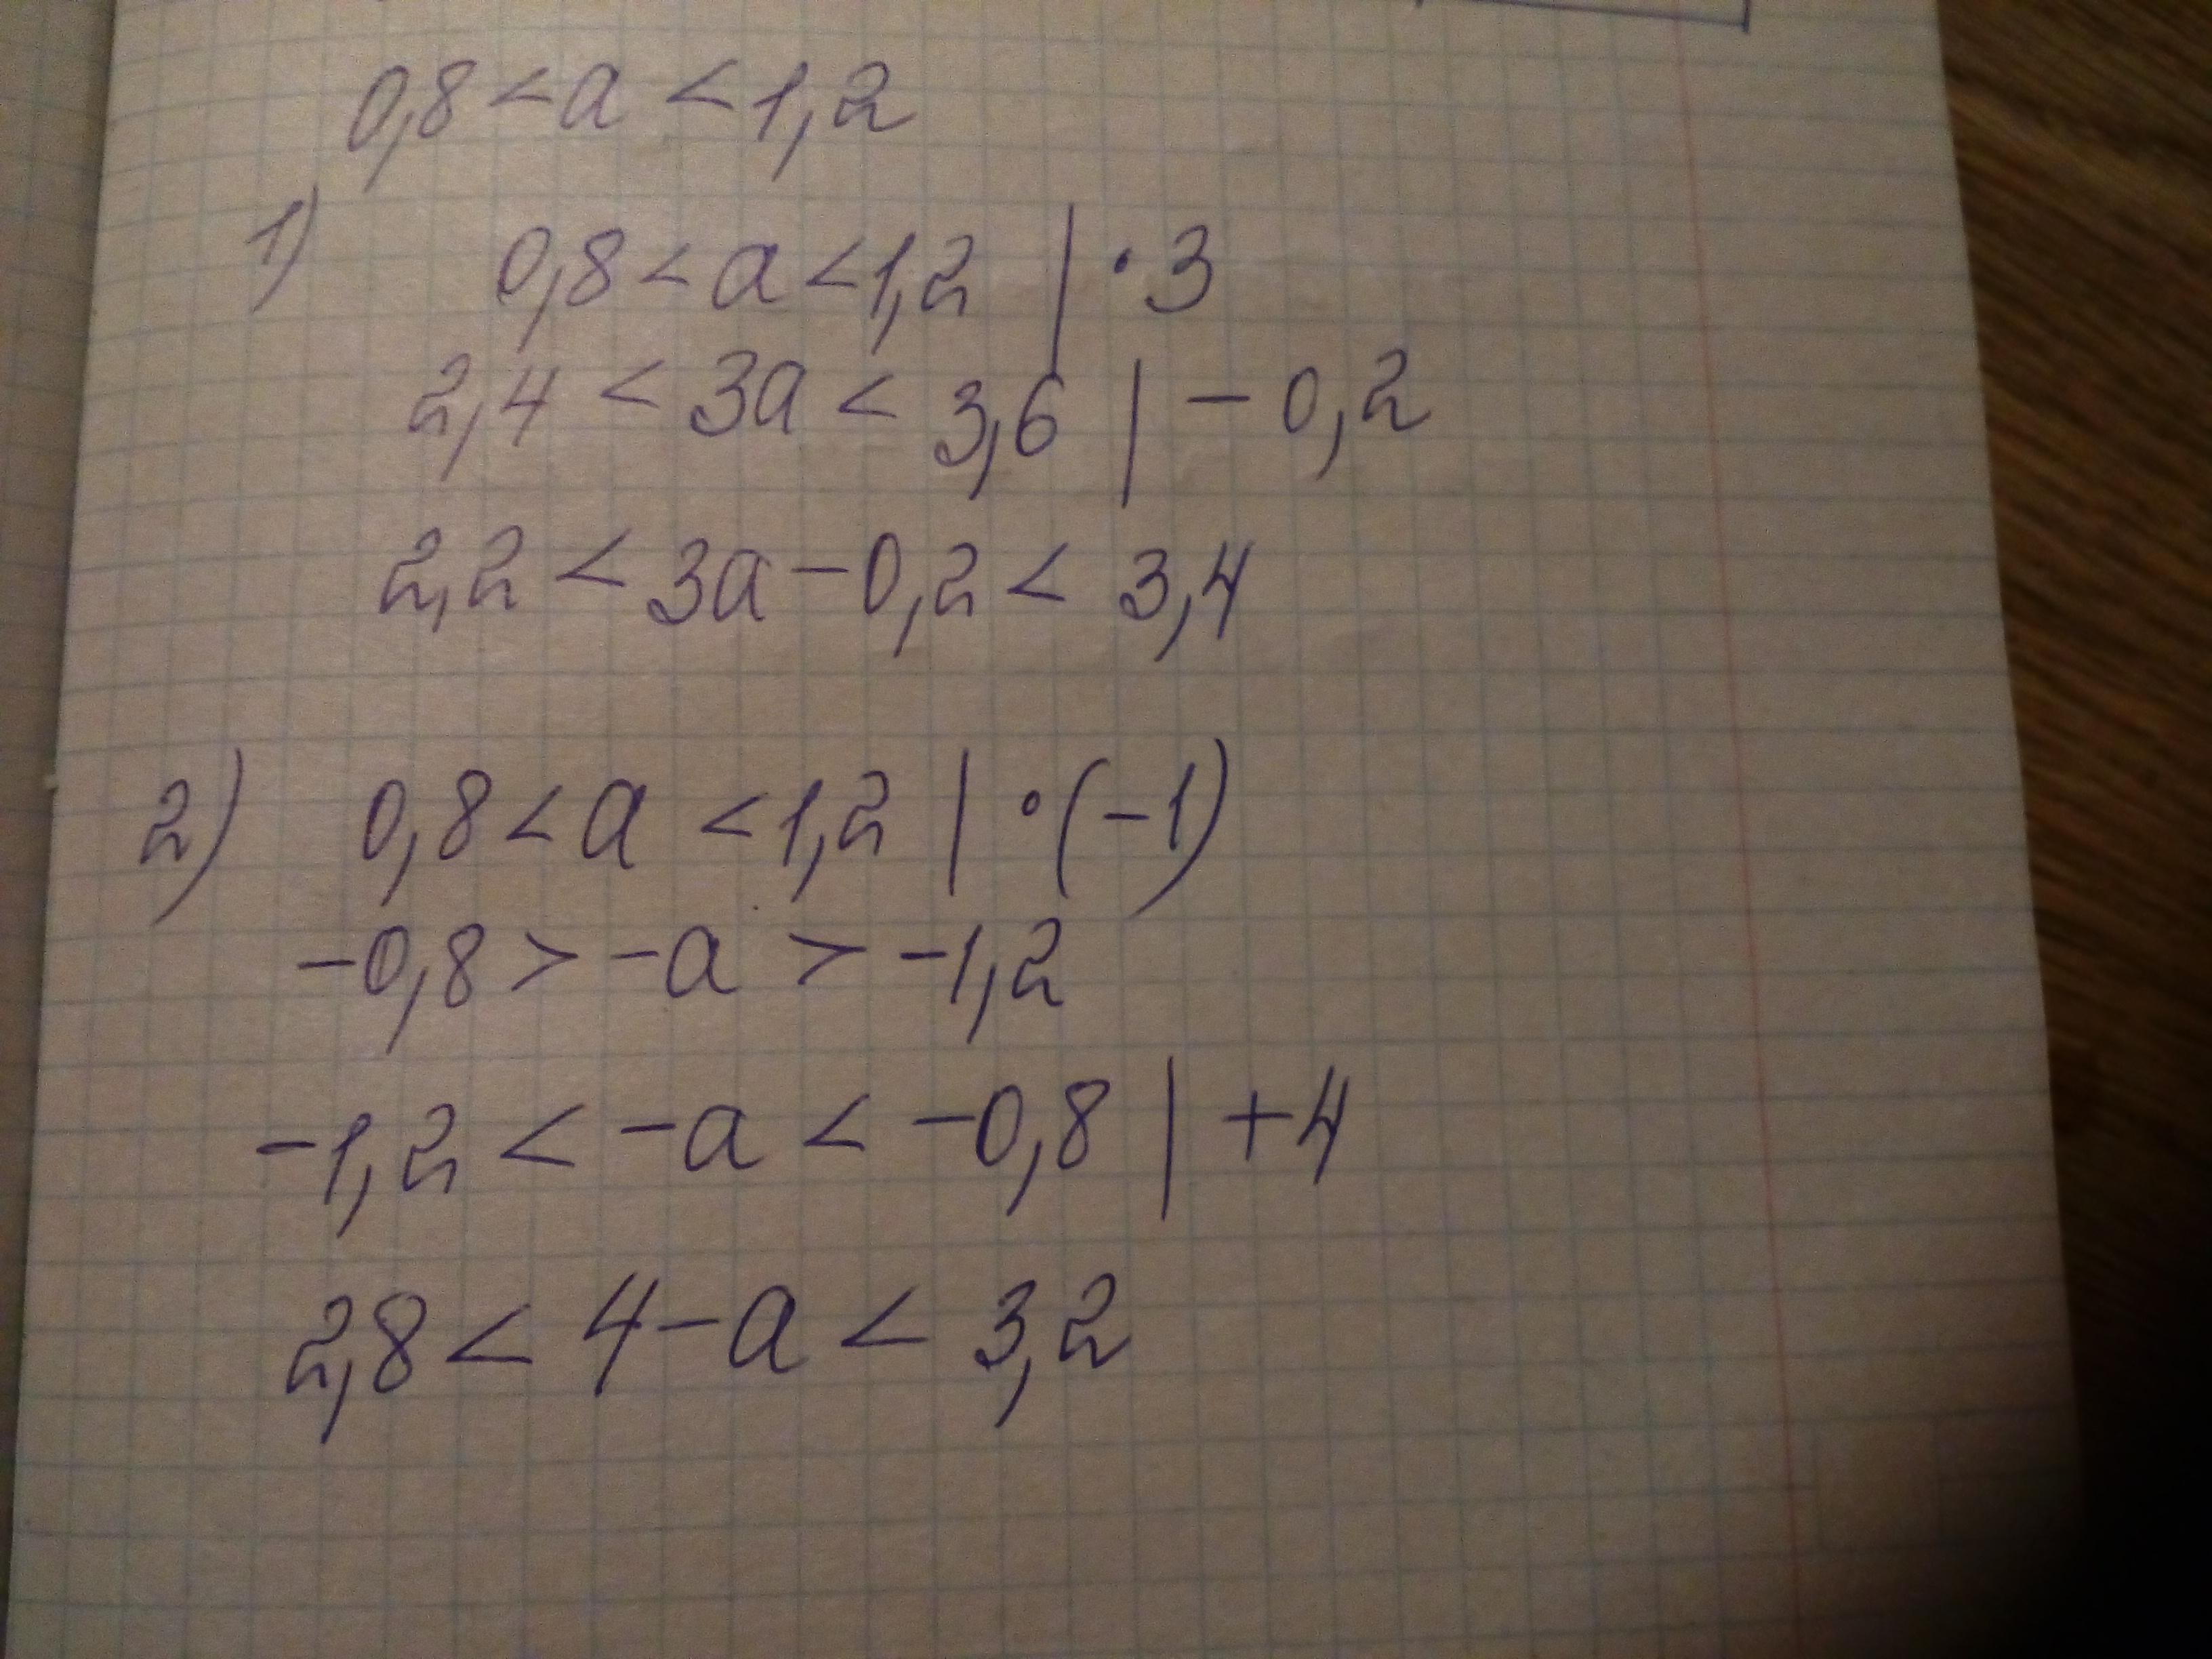 0,8 < a < 1,2
1) 0,8 < a < 1,2 | · 3
2,4 < 3a < 3,6 | - 0,2
2,2 < 3a - 0,2 < 3,4
2) 0,8 < a < 1,2 | · (-1)
-0,8 > -a > -1,2
-1,2 < -a < -0,8 | +4
2,8 < 4 - a < 3,2